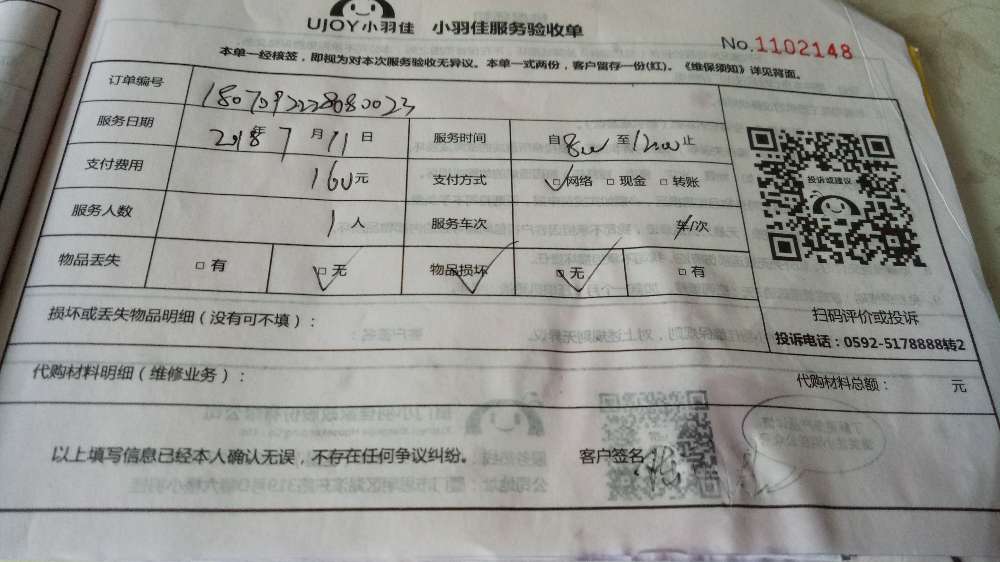 UJOY小羽佳 小羽佳服务验收单
No.1102148
本单一经接签，即视为对本次服务验收无异议。本单一式两份，客户留存一份(红)。《维保须知》详见背面。
订单编号
服务日期 2018年7月11日 服务时间 自8:00至12:00止
支付费用 160元 支付方式 ☑网络 □现金 □转账
服务人数 1人 服务车次 车/次
物品丢失 □有 ☑无 物品损坏 ☑无 □有
投诉或建议
扫码评价或投诉
投诉电话：0592-5178888转2
损坏或丢失物品明细（没有可不填）：
代购材料明细（维修业务）： 代购材料总额： 元
以上填写信息已经本人确认无误，不存在任何争议纠纷。 客户签名